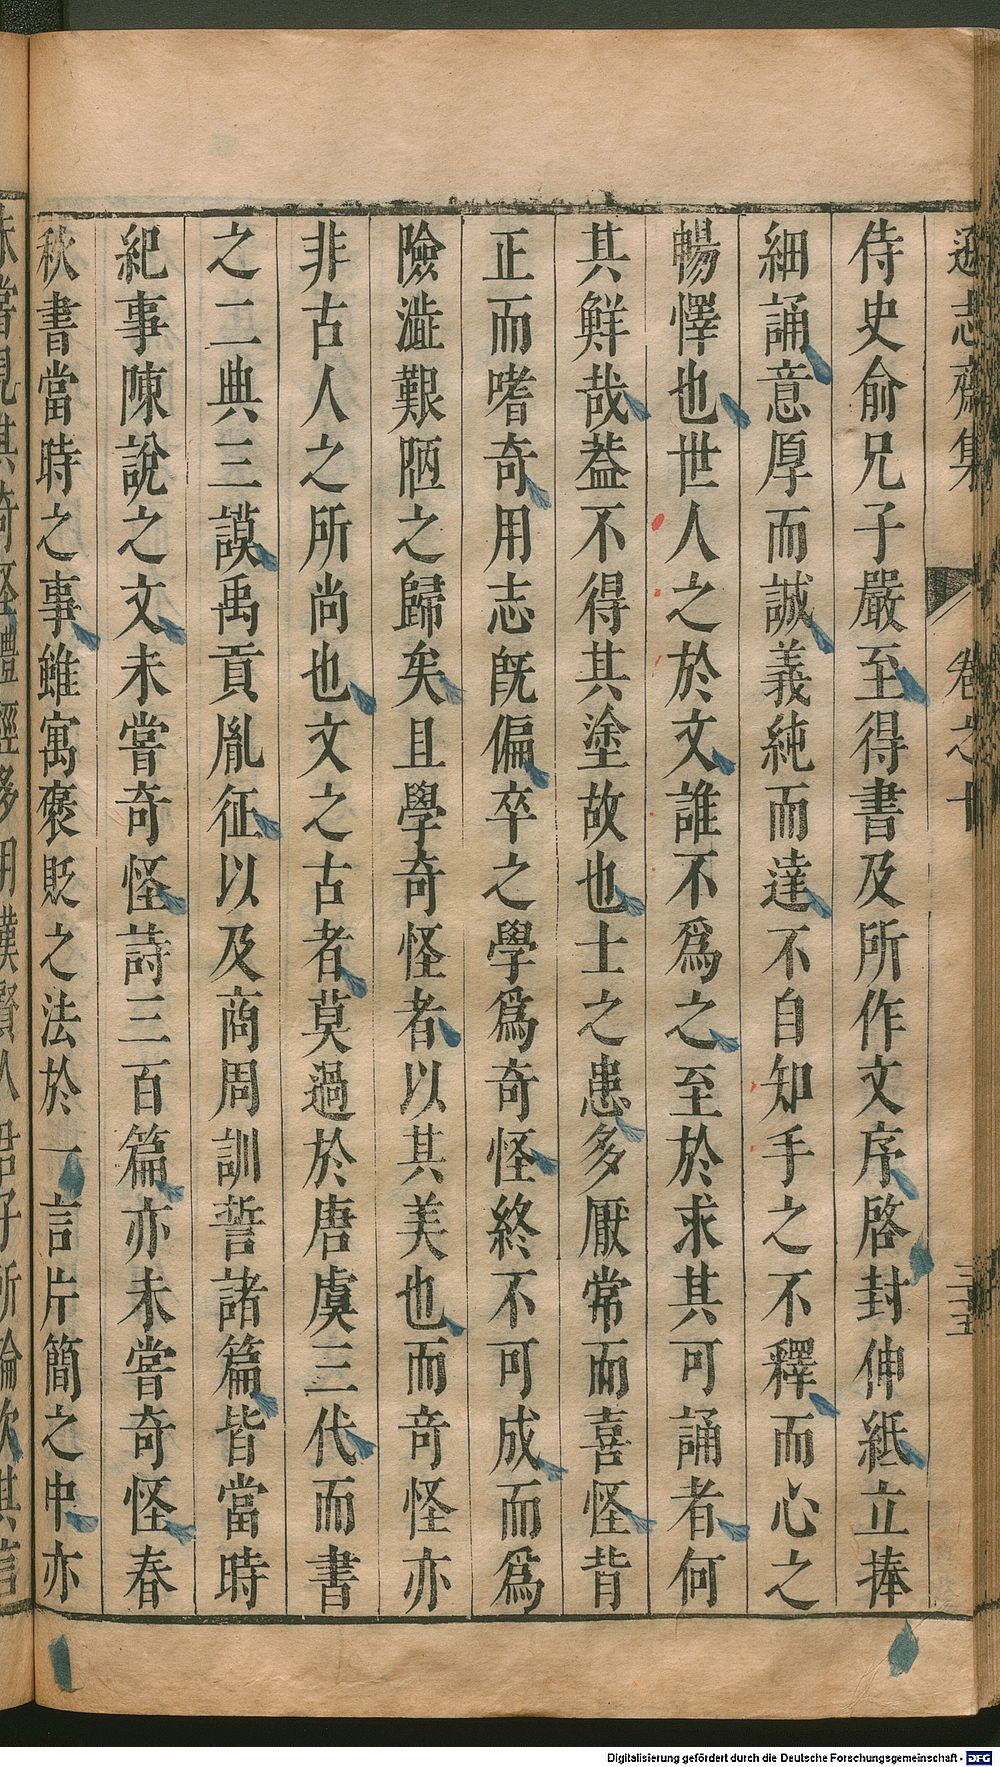 遜志齋集 卷之十 三五
侍史俞兄子嚴至得書及所作文序啓封伸紙立捧
細誦意厚而誠義純而達不自知手之不釋而心之
暢懌也世人之於文誰不爲之至於求其可誦者何
其鮮哉葢不得其塗故也士之患多厭常而喜怪背
正而嗜奇用志旣偏卒之學爲奇怪終不可成而爲
險澁艱陋之歸矣且學奇怪者以其美也而竒怪亦
非古人之所尚也文之古者莫過於唐虞三代而書
之二典三謨禹貢胤征以及商周訓誓諸篇皆當時
紀事陳說之文未嘗奇怪詩三百篇亦未嘗奇怪春
秋書當時之事雖寓褒貶之法於一言片簡之中亦
未嘗見其奇怪禮經多用漢賢人君子所論次其言
Digitalisierung gefördert durch die Deutsche Forschungsgemeinschaft - DFG